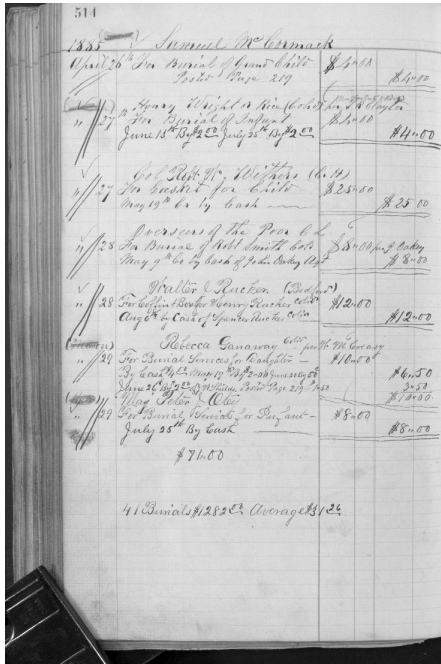 514
1885 Samuel McCormack
April 26th For Burial of Grand Child $4.00
Posted Page 219 $4.00
Henry Wright or Rice (Cold)
" 27 For Burial of Infant $4.00
June 13th By $2.00 July 25th By $2.00 $4.00
Col Robt W. Withers (C.H)
" 27 For Casket for Child $25.00
May 19th Cr by Cash $25 00
Overseers of the Poor C.C.
" 28 For Burial of Robt Smith Cold $8.00 per J Oakey
May 9th Cr by Cash of John Oakey Agt $8.00
Walter J Rucker. (Bedford)
" 28 For Coffin & Box for Henry Rucker Cold $12.00
Aug 6th by Cash of Spencer Rucker Cold $12.00
Rebecca Ganaway Cold per W. M. Creasy
" 29 For Burial Services for Daughter $10.00
By Cash May 19 $6.50
June 26 By 2.00 Posted Page 219 3.50
$10.00
Maj Peter J Otey
" 29 For Burial Services for Infant $8.00
July 25th By Cash $8.00
$71.00
41 Burials $1282.00 Average $31.26